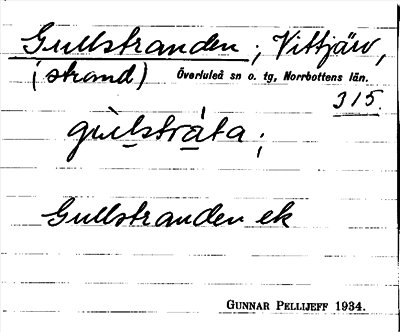 Gullstranden ; Vittjärv,
(strand) Överluleå sn o. tg, Norrbottens län.
315.
gùlstráta ;
Gullstranden ek
GUNNAR PELLIJEFF 1934.